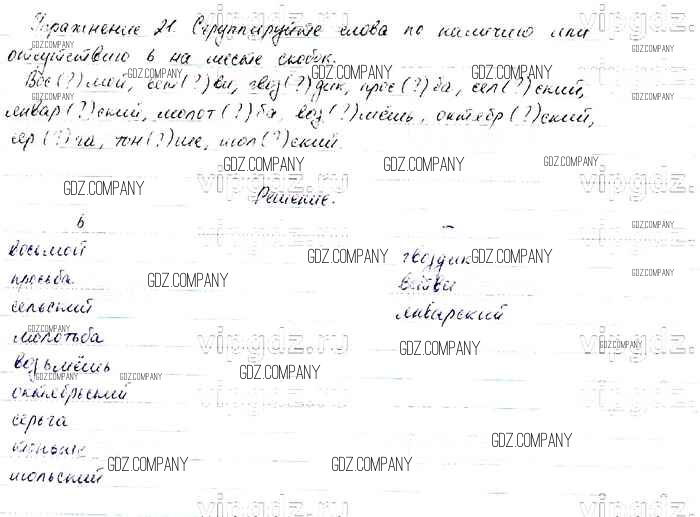 Упражнение 21. Сгруппируйте слова по наличию или
отсутствию ь на месте скобок.
Вос(?)мой, вет(?)ви, гвоз(?)дик, прос(?)ба, сел(?)ский,
январ(?)ский, молот(?)ба, воз(?)мёшь, октябр(?)ский,
сер(?)га, тон(?)ше, июл(?)ский.
Решение.
ь –
восьмой
гвоздик
просьба
ветви
сельский
январский
молотьба
возьмёшь
октябрьский
серьга
тоньше
июльский
GDZ.COMPANY
vipgdz.ru